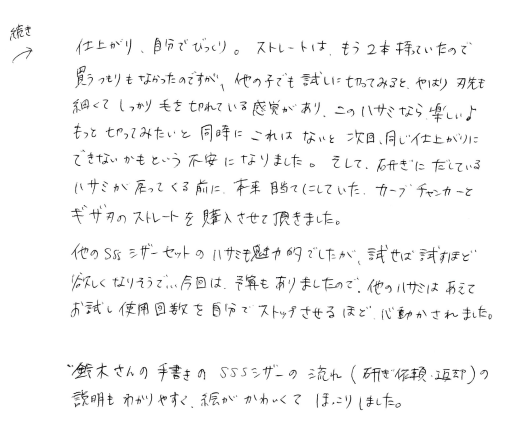 続き
→
仕上がり、自分でびっくり。ストレートは、もう2本持っていたので
買うつもりもなかったのですが、他の子でも試しに切ってみると、やはり刃先も
細くてしっかり毛を切れている感覚があり、このハサミなら、楽しい♪
もっと切ってみたいと同時にこれはないと次回、同じ仕上がりに
できないかもという不安になりました。そして、研ぎにだしている
ハサミが戻ってくる前に、本来目当てにしていた、カーブチャンカーと
ギザ刃のストレートを購入させて頂きました。
他のSSシザーセットのハサミも魅力的でしたが、試せば試すほど
欲しくなりそうで…今回は、予算もありましたので、他のハサミはあえて
お試し使用回数を自分でストップさせるほど、心動かされました。
鈴木さんの手書きのSSSシザーの流れ(研ぎ依頼・返却)の
説明もわかりやすく、絵がかわいくてほっこりしました。